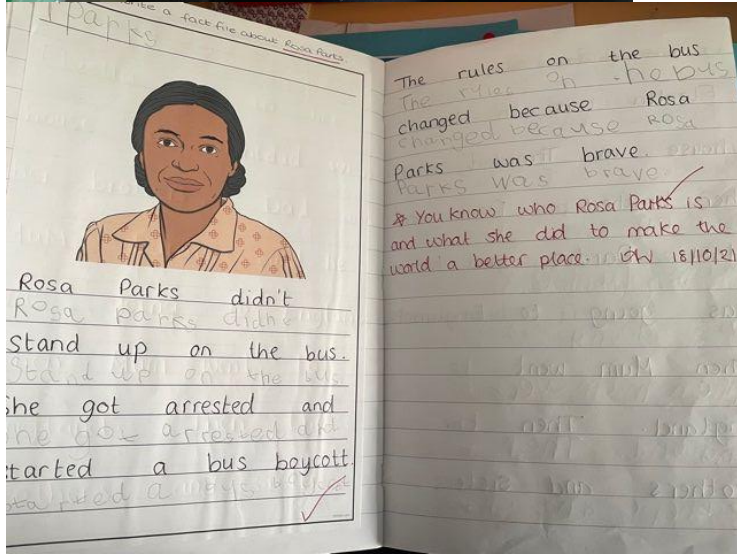 write a fact file about Rosa Parks.
Parks
Rosa Parks didn't
Rosa parks didn't
stand up on the bus.
Stand up on the bus
She got arrested and
he got arrested and
started a bus boycott.
started a
The rules on the bus
The rules on the bus
changed because Rosa
changed because Rosa
Parks was brave.
Parks was brave.
* You know who Rosa Parks is
and what she did to make the
world a better place. 18/10/21